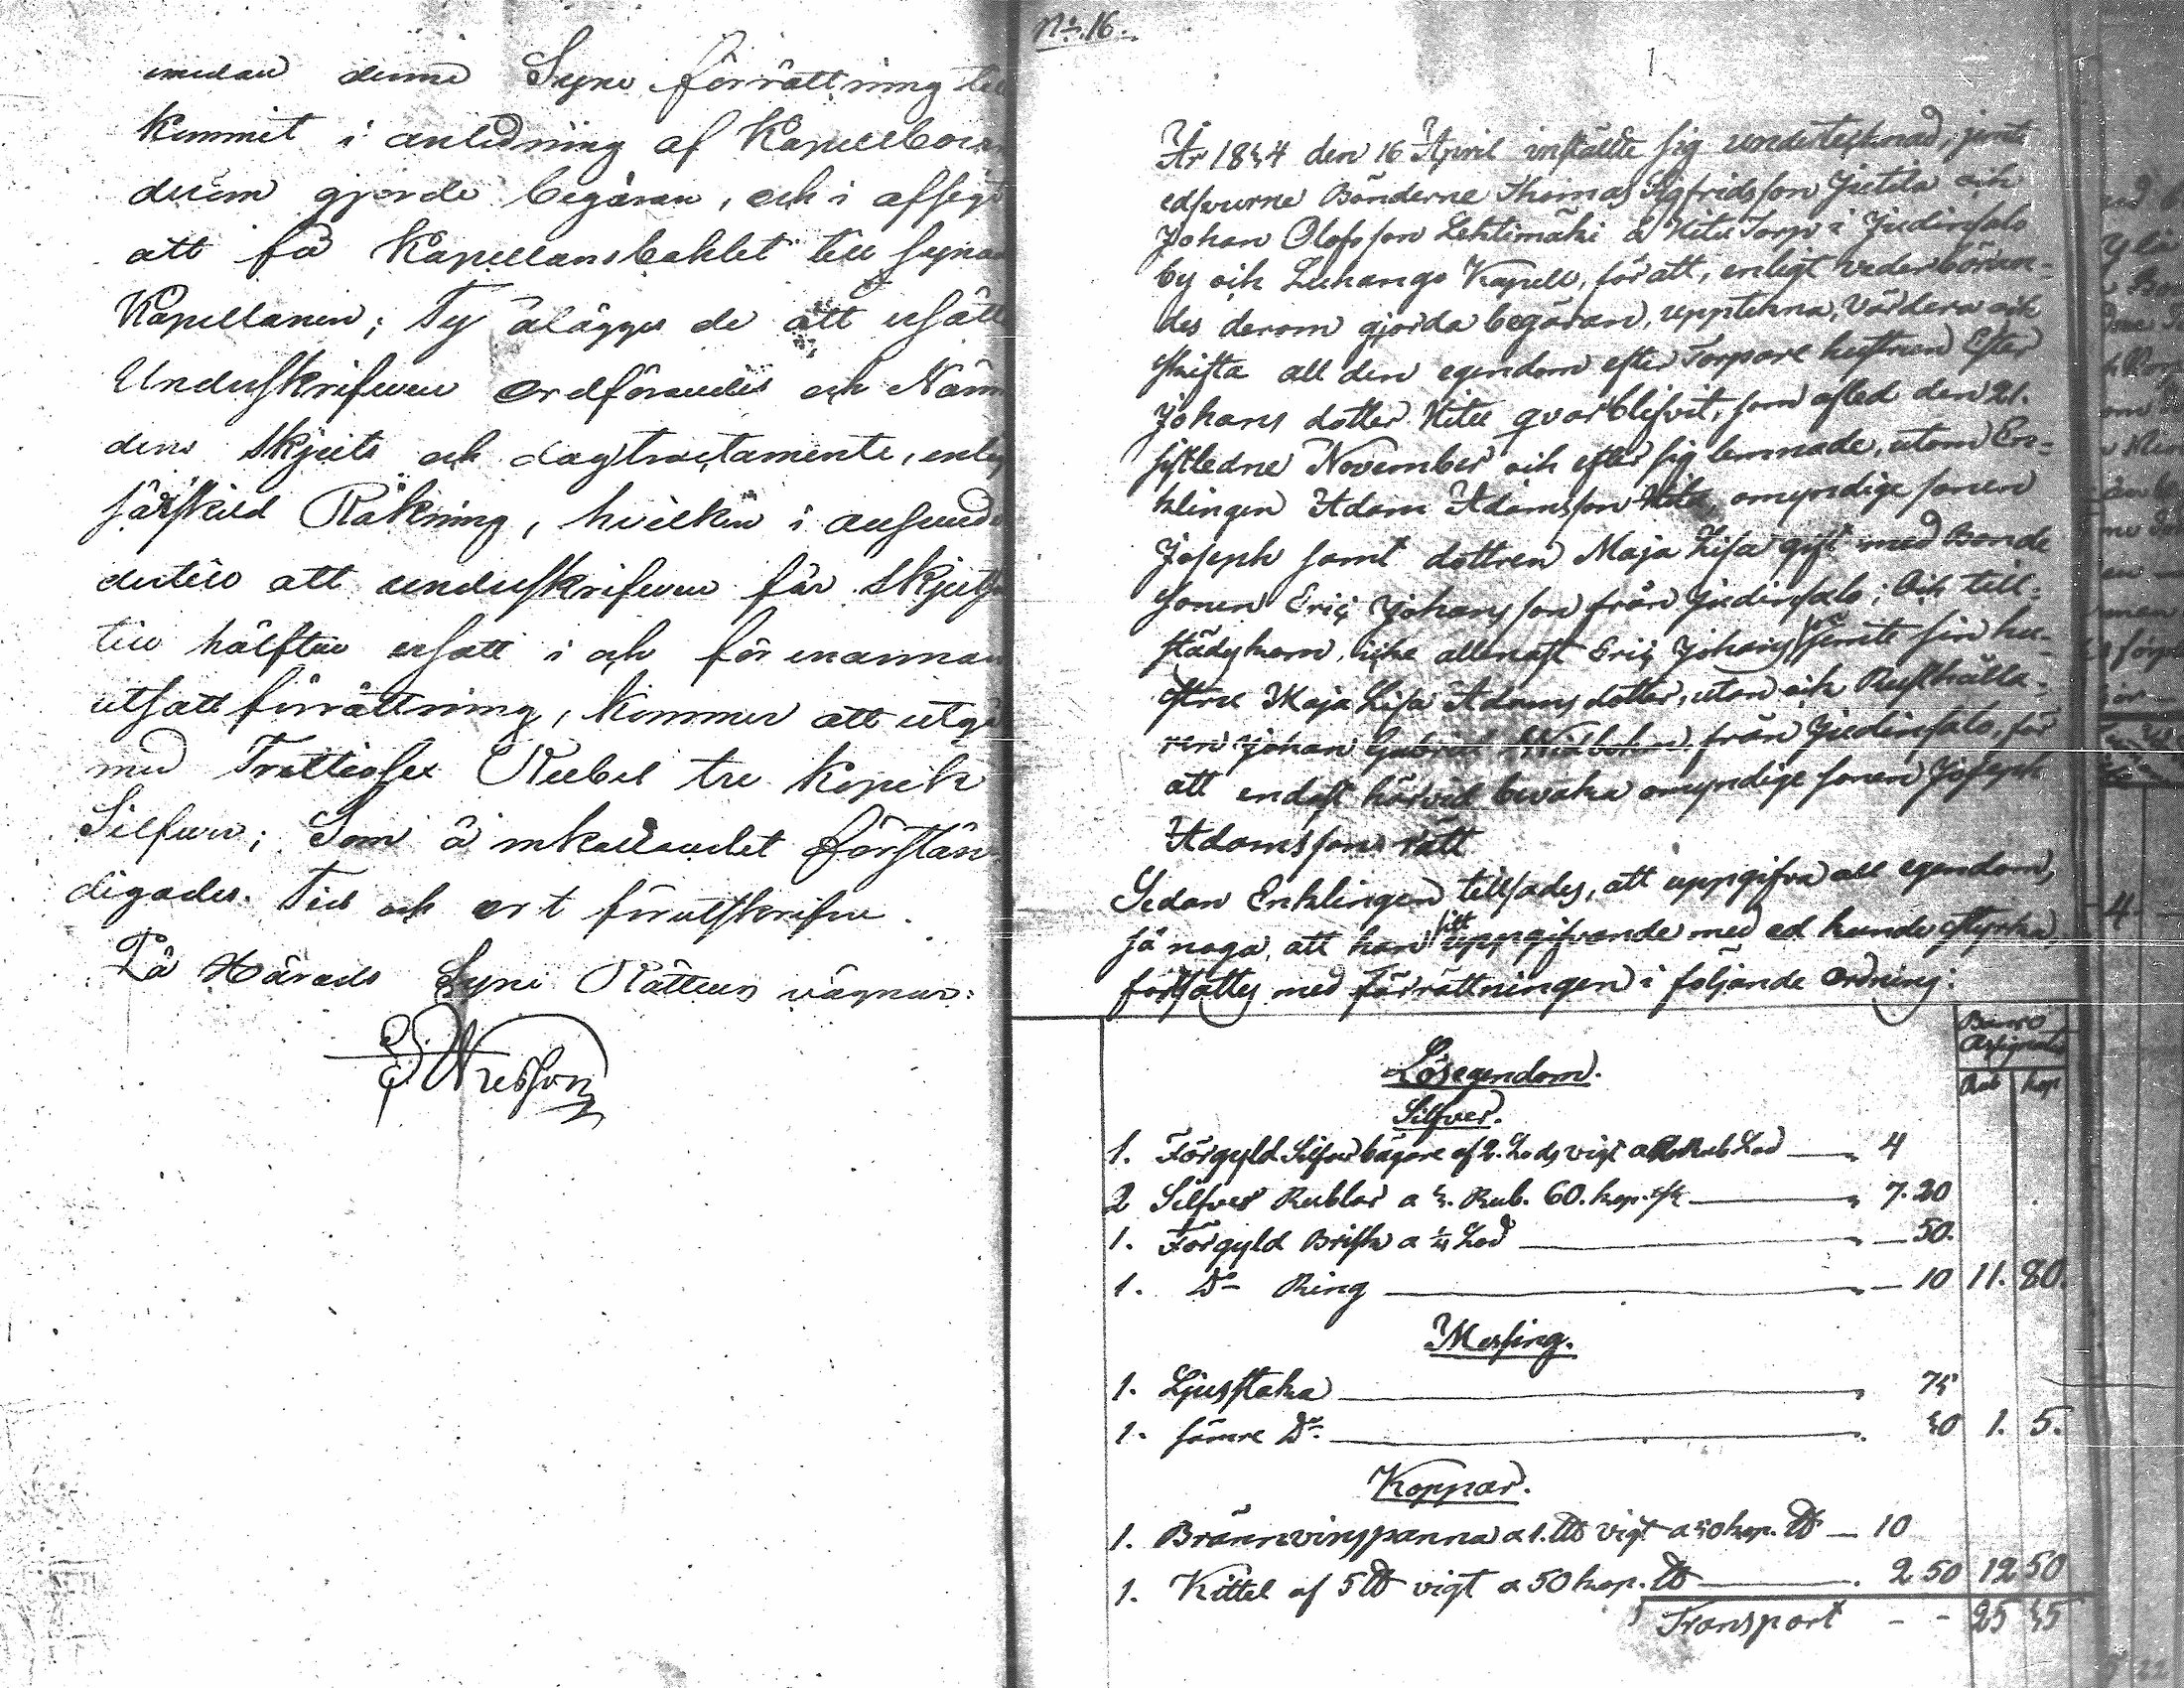 emedan denne Syne förrättning till
kommit i anledning af Kapellboer
derom gjorde begäran, och i afsigt
att få Kapellansbohlet till synad
Kapellanen; Ty ålägges de att ersätta
Underskrifven ordförandes och Näm
dens skjuts och dagtractamente, enlig
särskild Räkning, hvilken i anseende
dertill att underskrifven får skjutsen
till hälften ersatt i och för en annan
utsatt förrättning, kommer att utgå
med Trettiosex Rubel tre Kopek
Silfver; Som å inkallandet förstän-
digades. Tid och ort förutskrifne.
På Härads Syne Rättens vägnar:
No. 16.
1.
År 1844 den 16 April instälde sig undertecknad, jemte
edsvurne Bönderne Thomas Sigfridsson Jutila och
Johan Olofsson Lehtimäki å Hitu Torp i Judinsalo
by och Luhango Kapell, för att, enligt vederböran-
des derom gjorda begäran, upptekna, värdera och
skifta all den egendom efter Torpare hustrun Ester
Johans dotter Hitu qvarblifvit, som afled den 21.
sistledne November och efter sig lemnade, utom En-
klingen Adam Adamsson Hitu, omyndige sonen
Joseph samt dottren Maja Lisa gift med Bonde
sonen Eric Johansson från Judinsalo; Och till-
städeskom, icke allenast Eric Johansson jemte sin hu-
stru Maja Lisa Adams dotter, utan och Rusthålla-
ren Johan Gabriel Widbohm från Judinsalo, för
att endast härvid bevaka omyndige sonen Joseph
Adamssons rätt
Sedan Enklingen tillsades, att uppgifva all egendom,
så noga, att han sitt uppgifvande med ed kunde styrka,
fortsattes med Förrättningen i följande ordning:
Banco
Assignats
Rub kop
Lösegendom.
Silfver.
1. Förgyld Silfver bägare af 2. Lods vigt a 2 Rub Lod — 4
2 Silfver Rublar a 3. Rub. 60. kop. st. — 7. 20
1. Förgyld Brisk a 1/4 Lod — 50.
1. Do Ring — 10 11. 80.
Messing.
1. Ljusstaka — 75
1. sämre Do. — 30 1. 5.
Koppar.
1. Brännvinspanna a 1. L℔ vigt a 50 kop. ℔ — 10
1. Kittel af 5 ℔ vigt a 50 kop. ℔ — 2 50 12 50
Transport - - 25 35